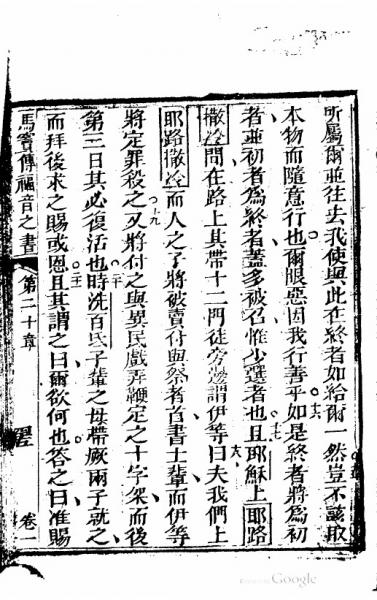 所屬爾並往去我使與此在終者如給爾一然豈不該取
本物而隨意行也爾眼惡因我行善乎十六如是終者將為初
者並初者為終者蓋多被召惟少選者也十七且耶穌上耶路
撒冷間在路上其帶十二門徒旁邊謂伊等曰夫我們上
耶路撒冷而人之子將被賣付與祭者首書士輩而伊等
將定罪殺之十九又將付之與異民戲弄鞭定之十字架而後
第三日其必復活也二十時洗百氐子輩之母帶厥兩子就之
而拜後求之賜或恩且其謂之曰爾欲何也答之曰准賜
馬竇傳福音之書 第二十章 卷一
Google